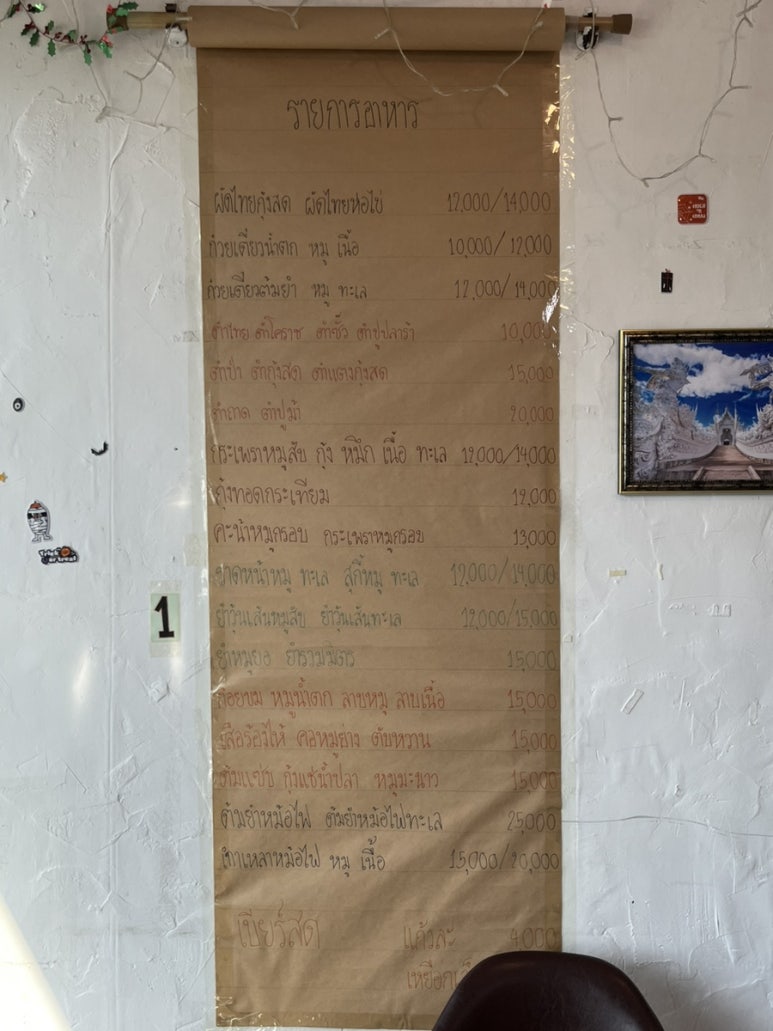 รายการอาหาร
ผัดไทยกุ้งสด ผัดไทยห่อไข่ 12,000/14,000
ก๋วยเตี๋ยวน้ำตก หมู เนื้อ 10,000/12,000
ก๋วยเตี๋ยวต้มยำ หมู ทะเล 12,000/14,000
ตำไทย ตำโคราช ตำซั่ว ตำปูปลาร้า 10,000
ตำป่า ตำกุ้งสด ตำแตงกุ้งสด 15,000
ตำถาด ตำปูม้า 20,000
กระเพราหมูสับ กุ้ง หมึก เนื้อ ทะเล 12,000/14,000
กุ้งทอดกระเทียม 12,000
คะน้าหมูกรอบ กระเพราหมูกรอบ 13,000
ราดหน้าหมู ทะเล สุกี้หมู ทะเล 12,000/14,000
ยำวุ้นเส้นหมูสับ ยำวุ้นเส้นทะเล 12,000/15,000
ยำหมูยอ ยำรวมมิตร 15,000
ซอยขม หมูน้ำตก ลาบหมู ลาบเนื้อ 15,000
เสือร้องไห้ คอหมูย่าง ตับหวาน 15,000
ต้มแซ่บ กุ้งแช่น้ำปลา หมูมะนาว 15,000
ต้มยำหม้อไฟ ต้มยำหม้อไฟทะเล 25,000
เกาเหลาหม้อไฟ หมู เนื้อ 15,000/20,000
เบียร์สด แก้วละ 4,000
เหยือก
1
Trick or treat